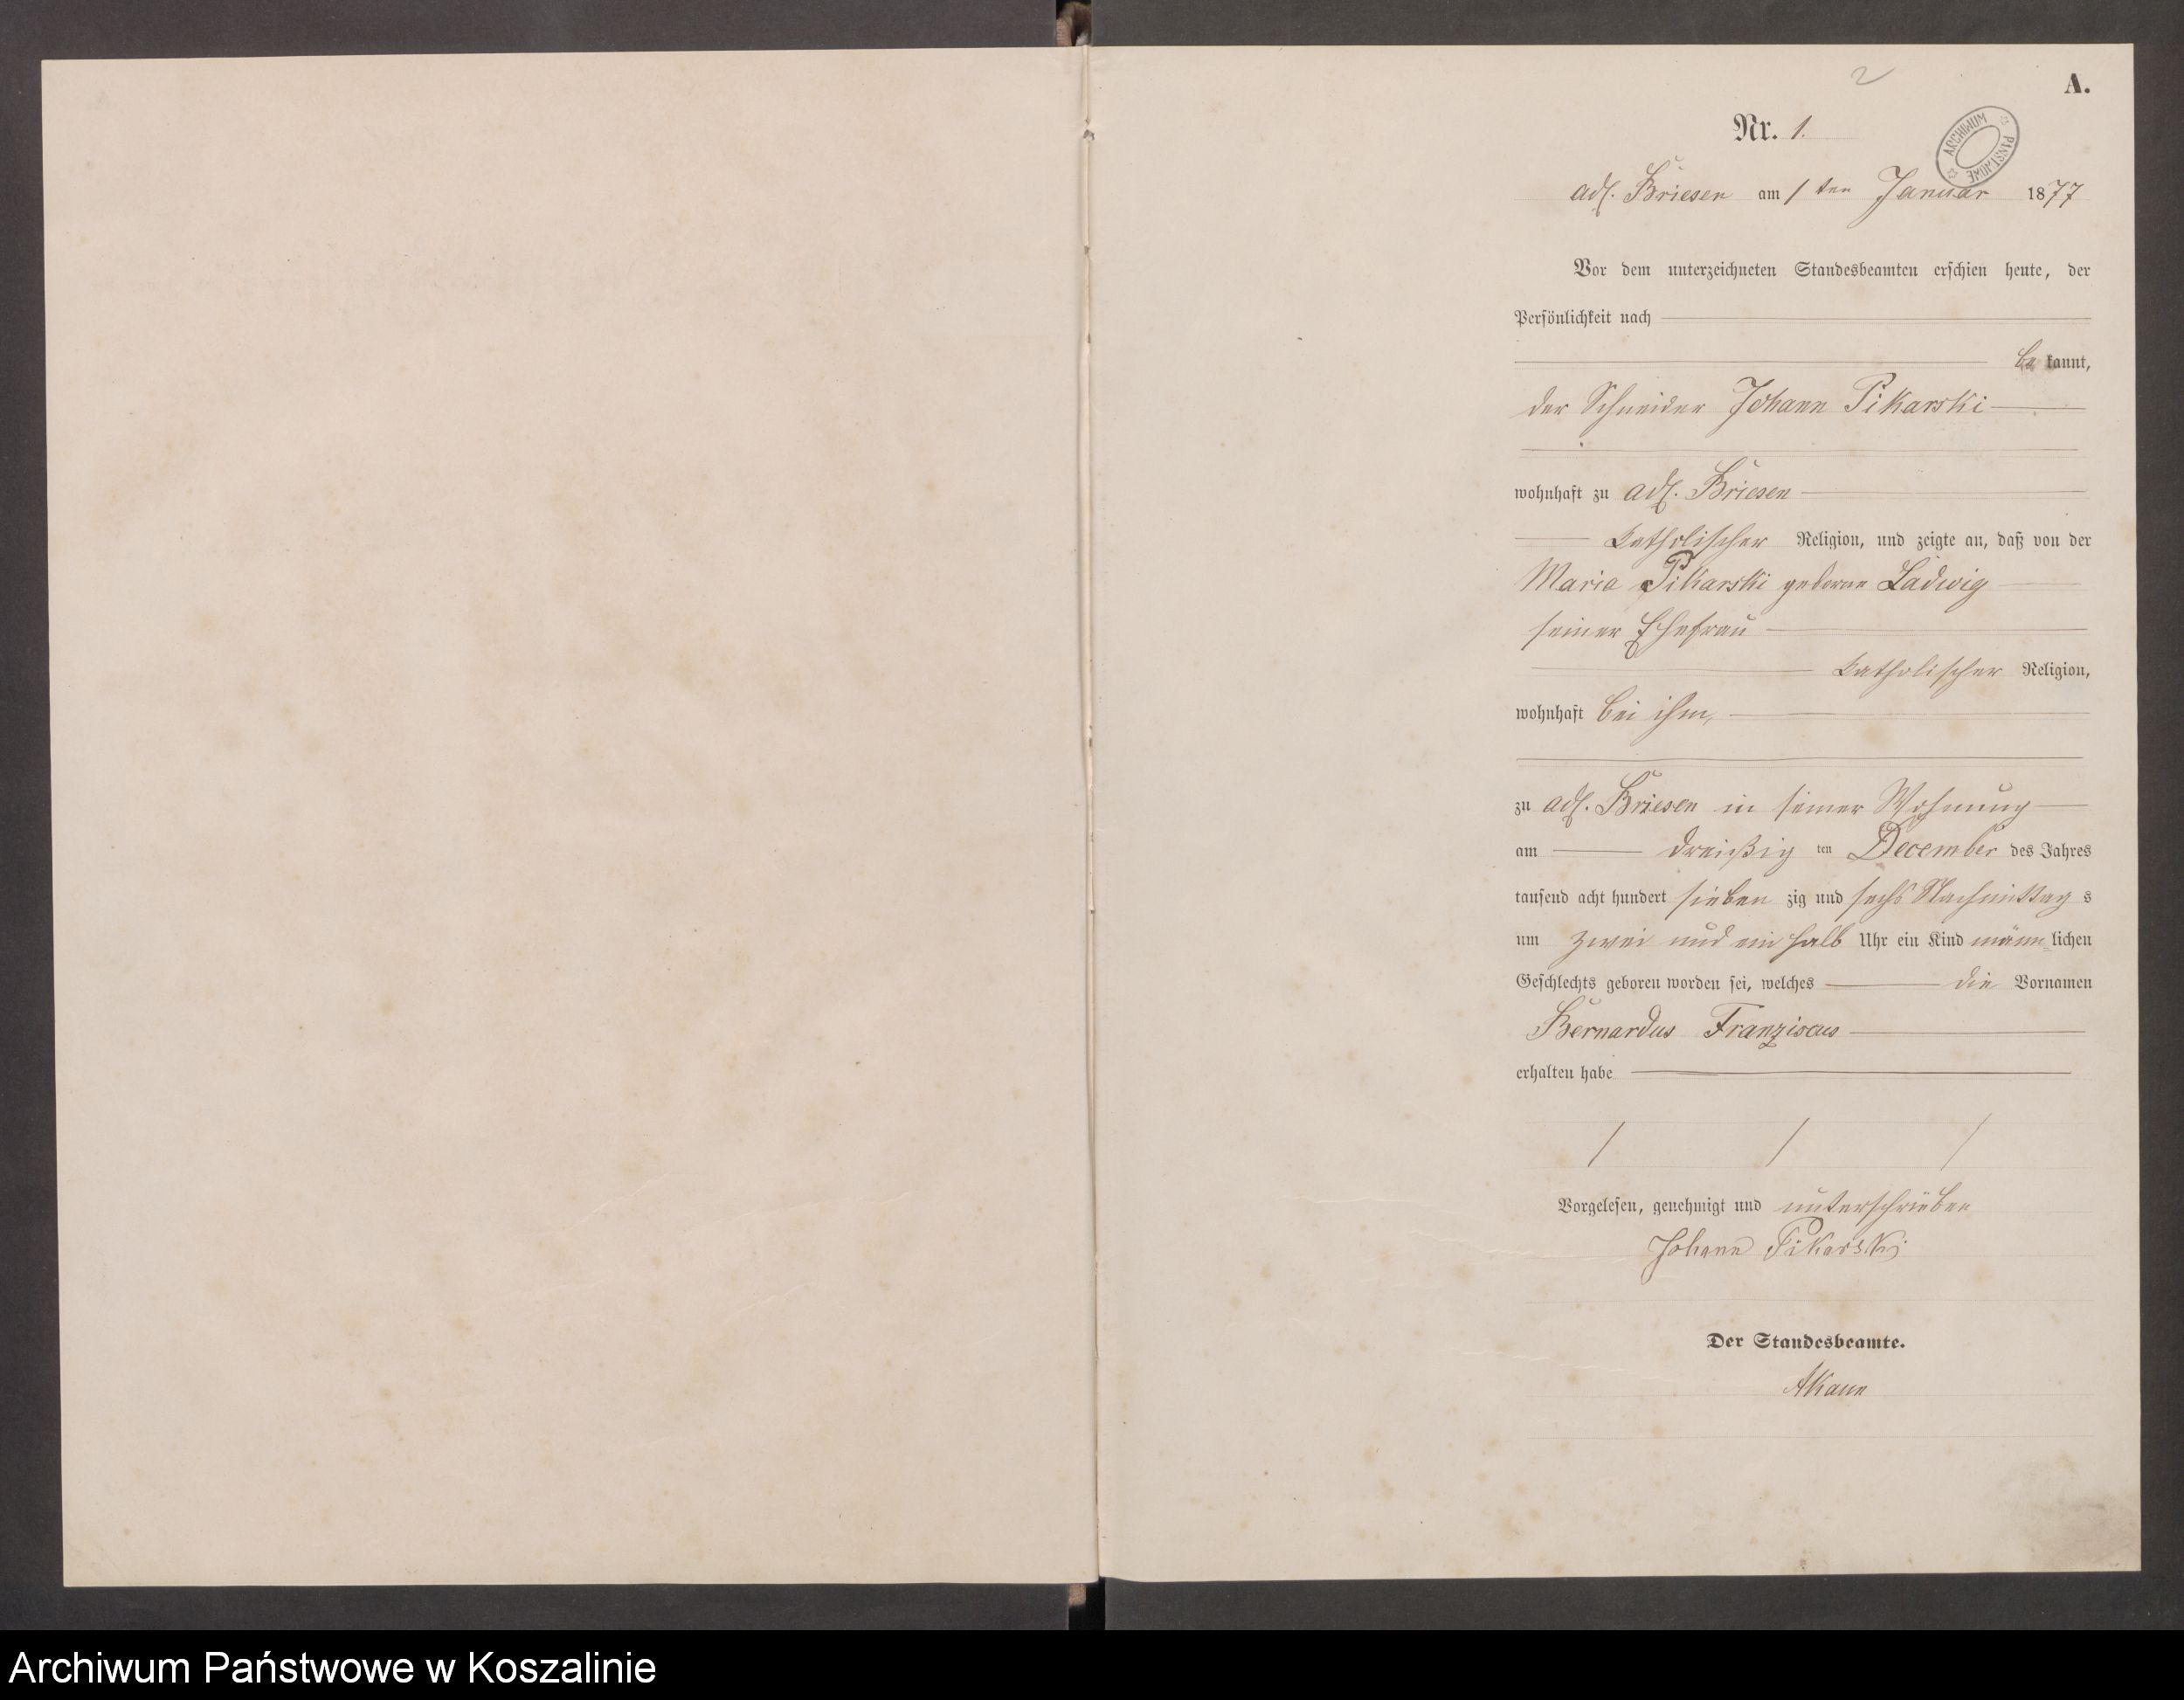 2
A.
Nr. 1.
ARCHIWUM PAŃSTWOWE
adl. Briesen am 1 ten Januar 1877
Vor dem unterzeichneten Standesbeamten erschien heute, der
Persönlichkeit nach
be kannt,
der Schneider Johann Pikarski
wohnhaft zu adl. Briesen
katholischer Religion, und zeigte an, daß von der
Maria Pikarski geborne Ladwig
seiner Ehefrau
katholischer Religion,
wohnhaft bei ihm,
zu adl. Briesen in seiner Wohnung
am dreißig ten December des Jahres
tausend acht hundert sieben zig und sechs Nachmittag s
um zwei und ein halb Uhr ein Kind männ- lichen
Geschlechts geboren worden sei, welches die Vornamen
Bernardus Franziscus
erhalten habe
Vorgelesen, genehmigt und unterschrieben
Johann Pikarski
Der Standesbeamte.
Archiwum Państwowe w Koszalinie